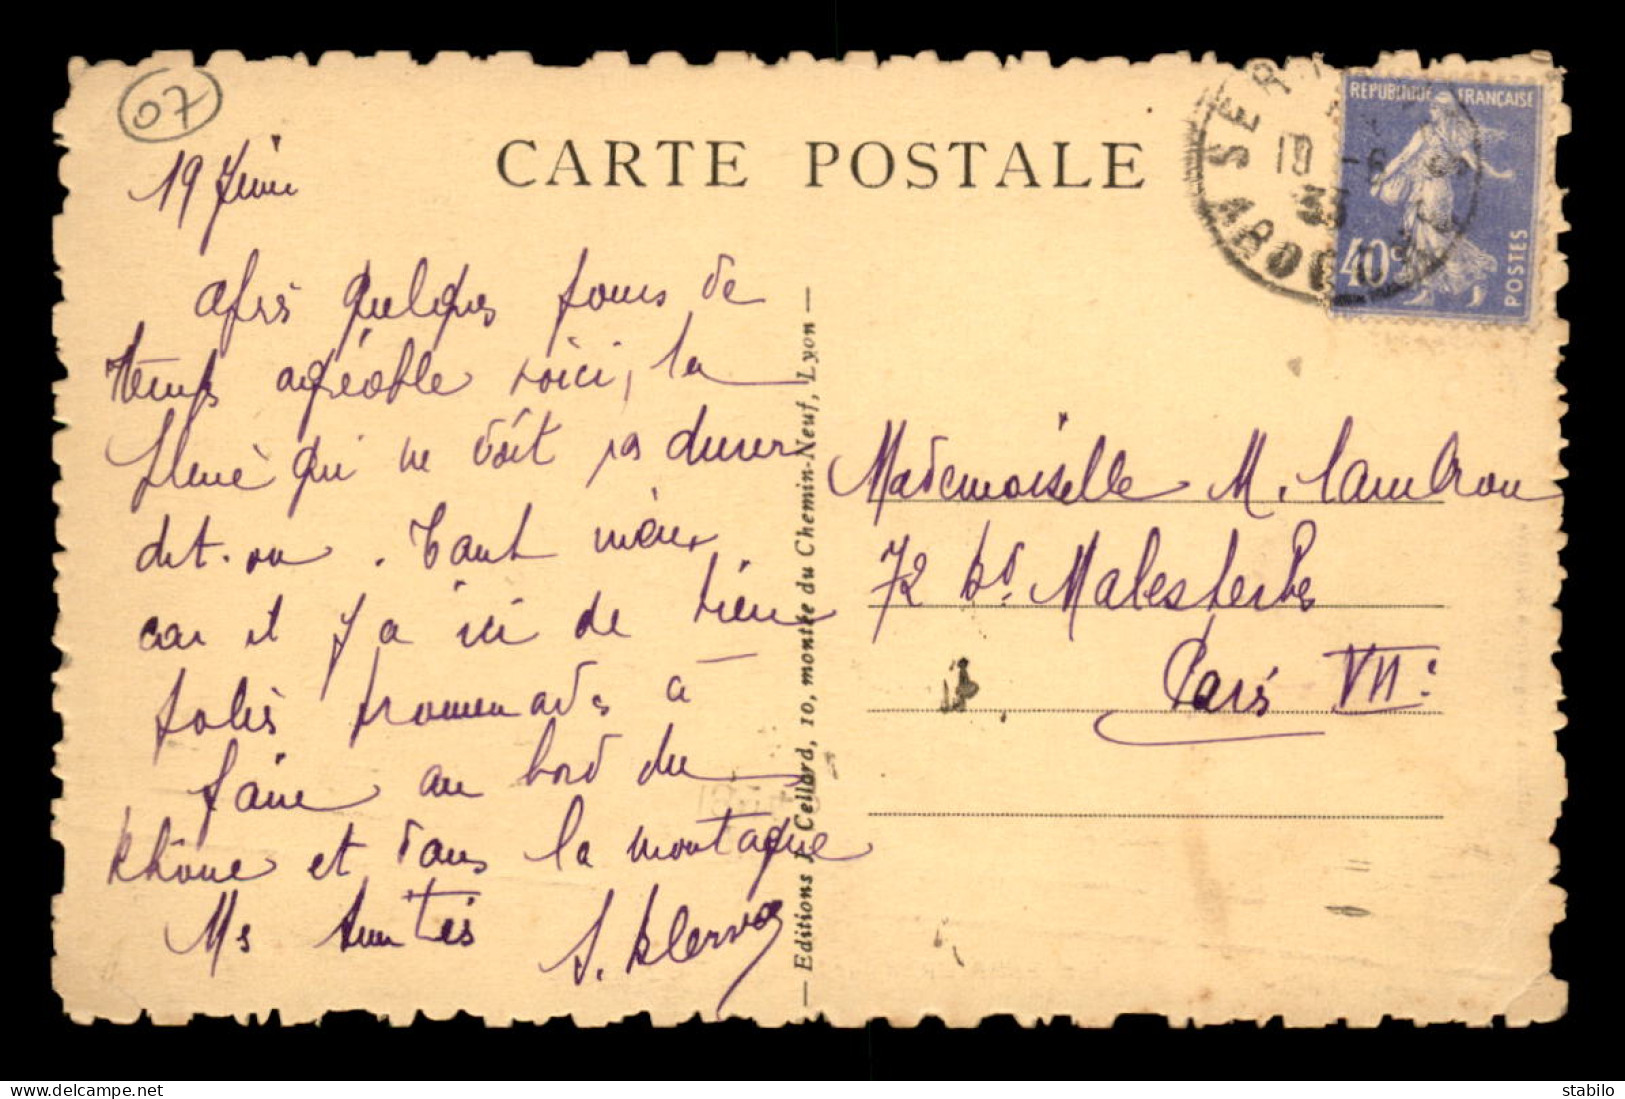 07
CARTE POSTALE
19 Juin
Après quelques jours de
temps agréable voici, la
pluie qui ne doit pas durer
dit-on. Tant mieux
car il y a ici de bien
jolies promenades à
faire au bord du
Rhône et dans la montagne
Ms Amitiés
Mademoiselle M. Cambron
72 bd. Malesherbes
Paris VIIIe
— Editions J. Cellard, 10, montée du Chemin-Neuf, Lyon —
REPUBLIQUE FRANÇAISE
40c
POSTES
-6
35
stabilo